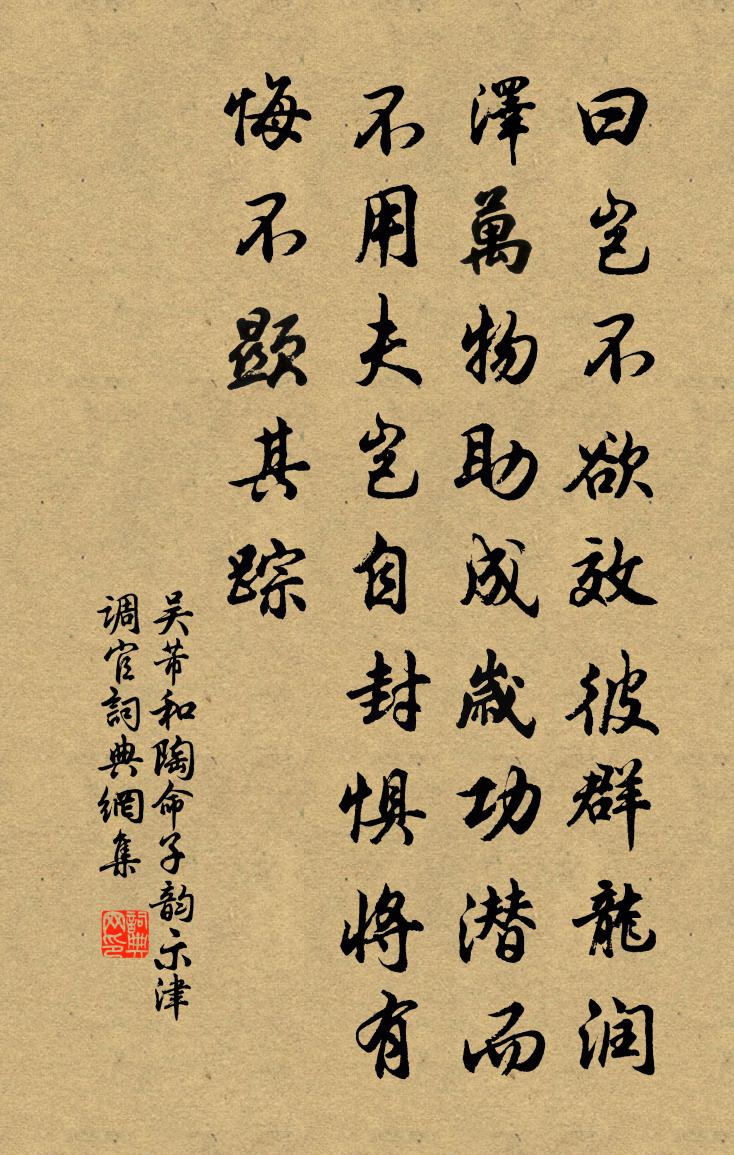 曰岂不欲效彼群龍润
澤萬物助成歲功潜而
不用夫岂自封惧将有
悔不顯其踪
吴芾和陶命子韵示津
调官詞典網集
詞典网印